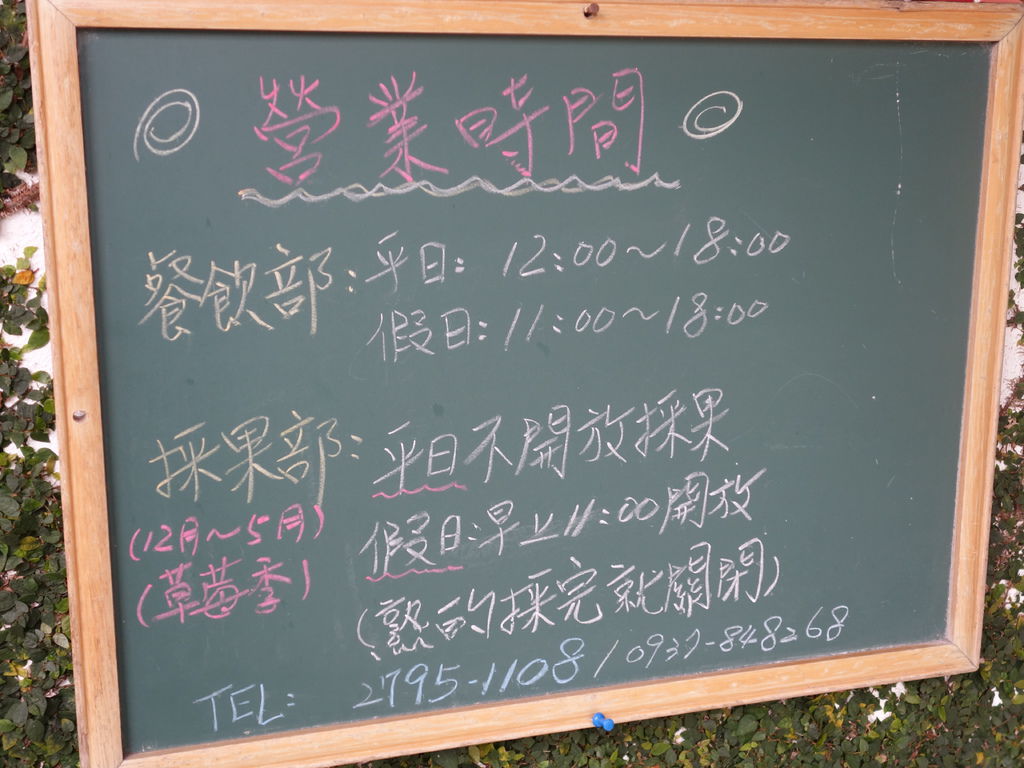 營業時間
餐飲部: 平日: 12:00~18:00
假日: 11:00~18:00
採果部: 平日不開放採果
(12月~5月) 假日:早上11:00開放
(草莓季) (熟的採完就關閉)
TEL: 2795-1108 / 0937-848268